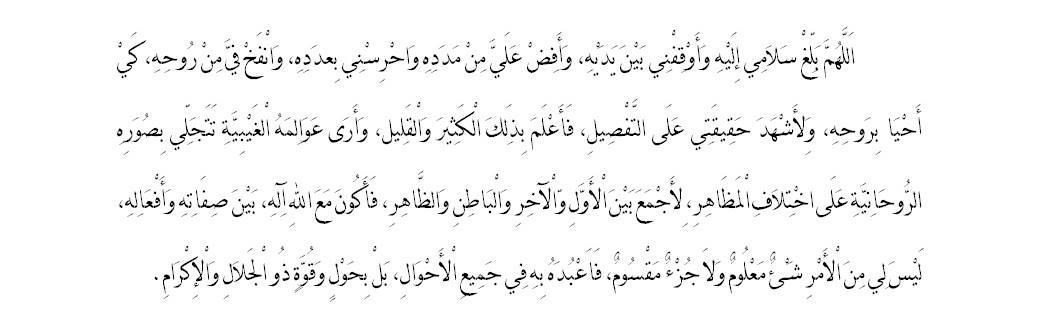 اَللَّهُمَّ بَلِّغْ سَلاَمِي إِلَيْهِ وَأَوْقِفْنِي بَيْنَ يَدَيْهِ، وَأَفِضْ عَلَيَّ مِنْ مَدَدِهِ وَاحْرِسْنِي بِعدَدِهِ، وَانْفَخْ فِيَّ مِنْ رُوحِهِ، كَيْ
أَحْيَا بِرَوحِهِ، وَلِأَشْهَدَ حَقِيقَتِي عَلَى التَّفْصِيلِ، فَأَعْلَمَ بِذَلِكَ الْكَثِيرَ وَالْقَلِيل، وَأَرَى عَوَالِمَهُ الْغَيْبِيَّةِ تَتَجَلِّي بِصُوَرِهِ
الرُّوحَانِيَّةِ عَلَى اخْتِلاَفِ الْمَظَاهِرِ، لِأَجْمَعَ بَيْنَ الْأَوَّلِ وّالْآخِرِ وَالْبَاطِنِ وَالظَّاهِرِ، فَأَكُونَ مَعَ اللهِ آلِهِ، بَيْنَ صِفَاتِهِ وَأَفْعَالِهِ،
لَيْسَ لِي مِنَ الْأَمْرِ شَئٌ مَعْلُومٌ وَلاَ جُزْءٌ مَقْسُومٌ، فَاَعْبُدَهُ بِهِ فِي جَمِيعِ الْأَحْوَالِ، بَلْ بِحَوْلٍ وَقُوَّةٍ ذُو الْجَلاَلِ وَالْإِكْرَامِ.